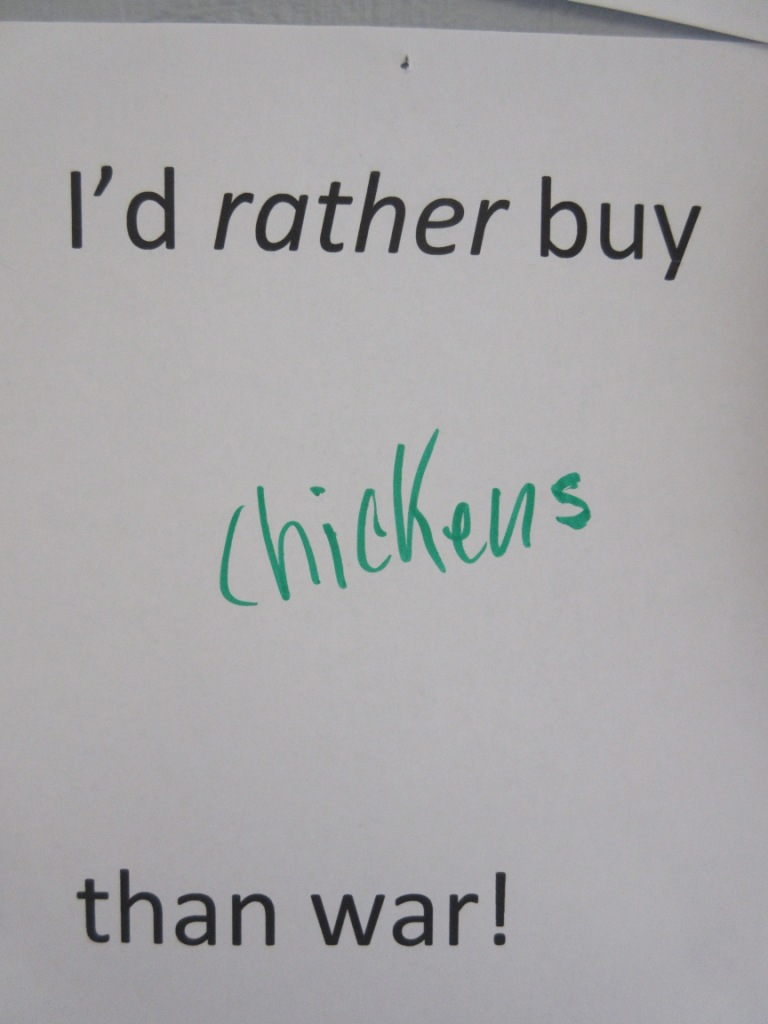 I'd rather buy
chickens
than war!